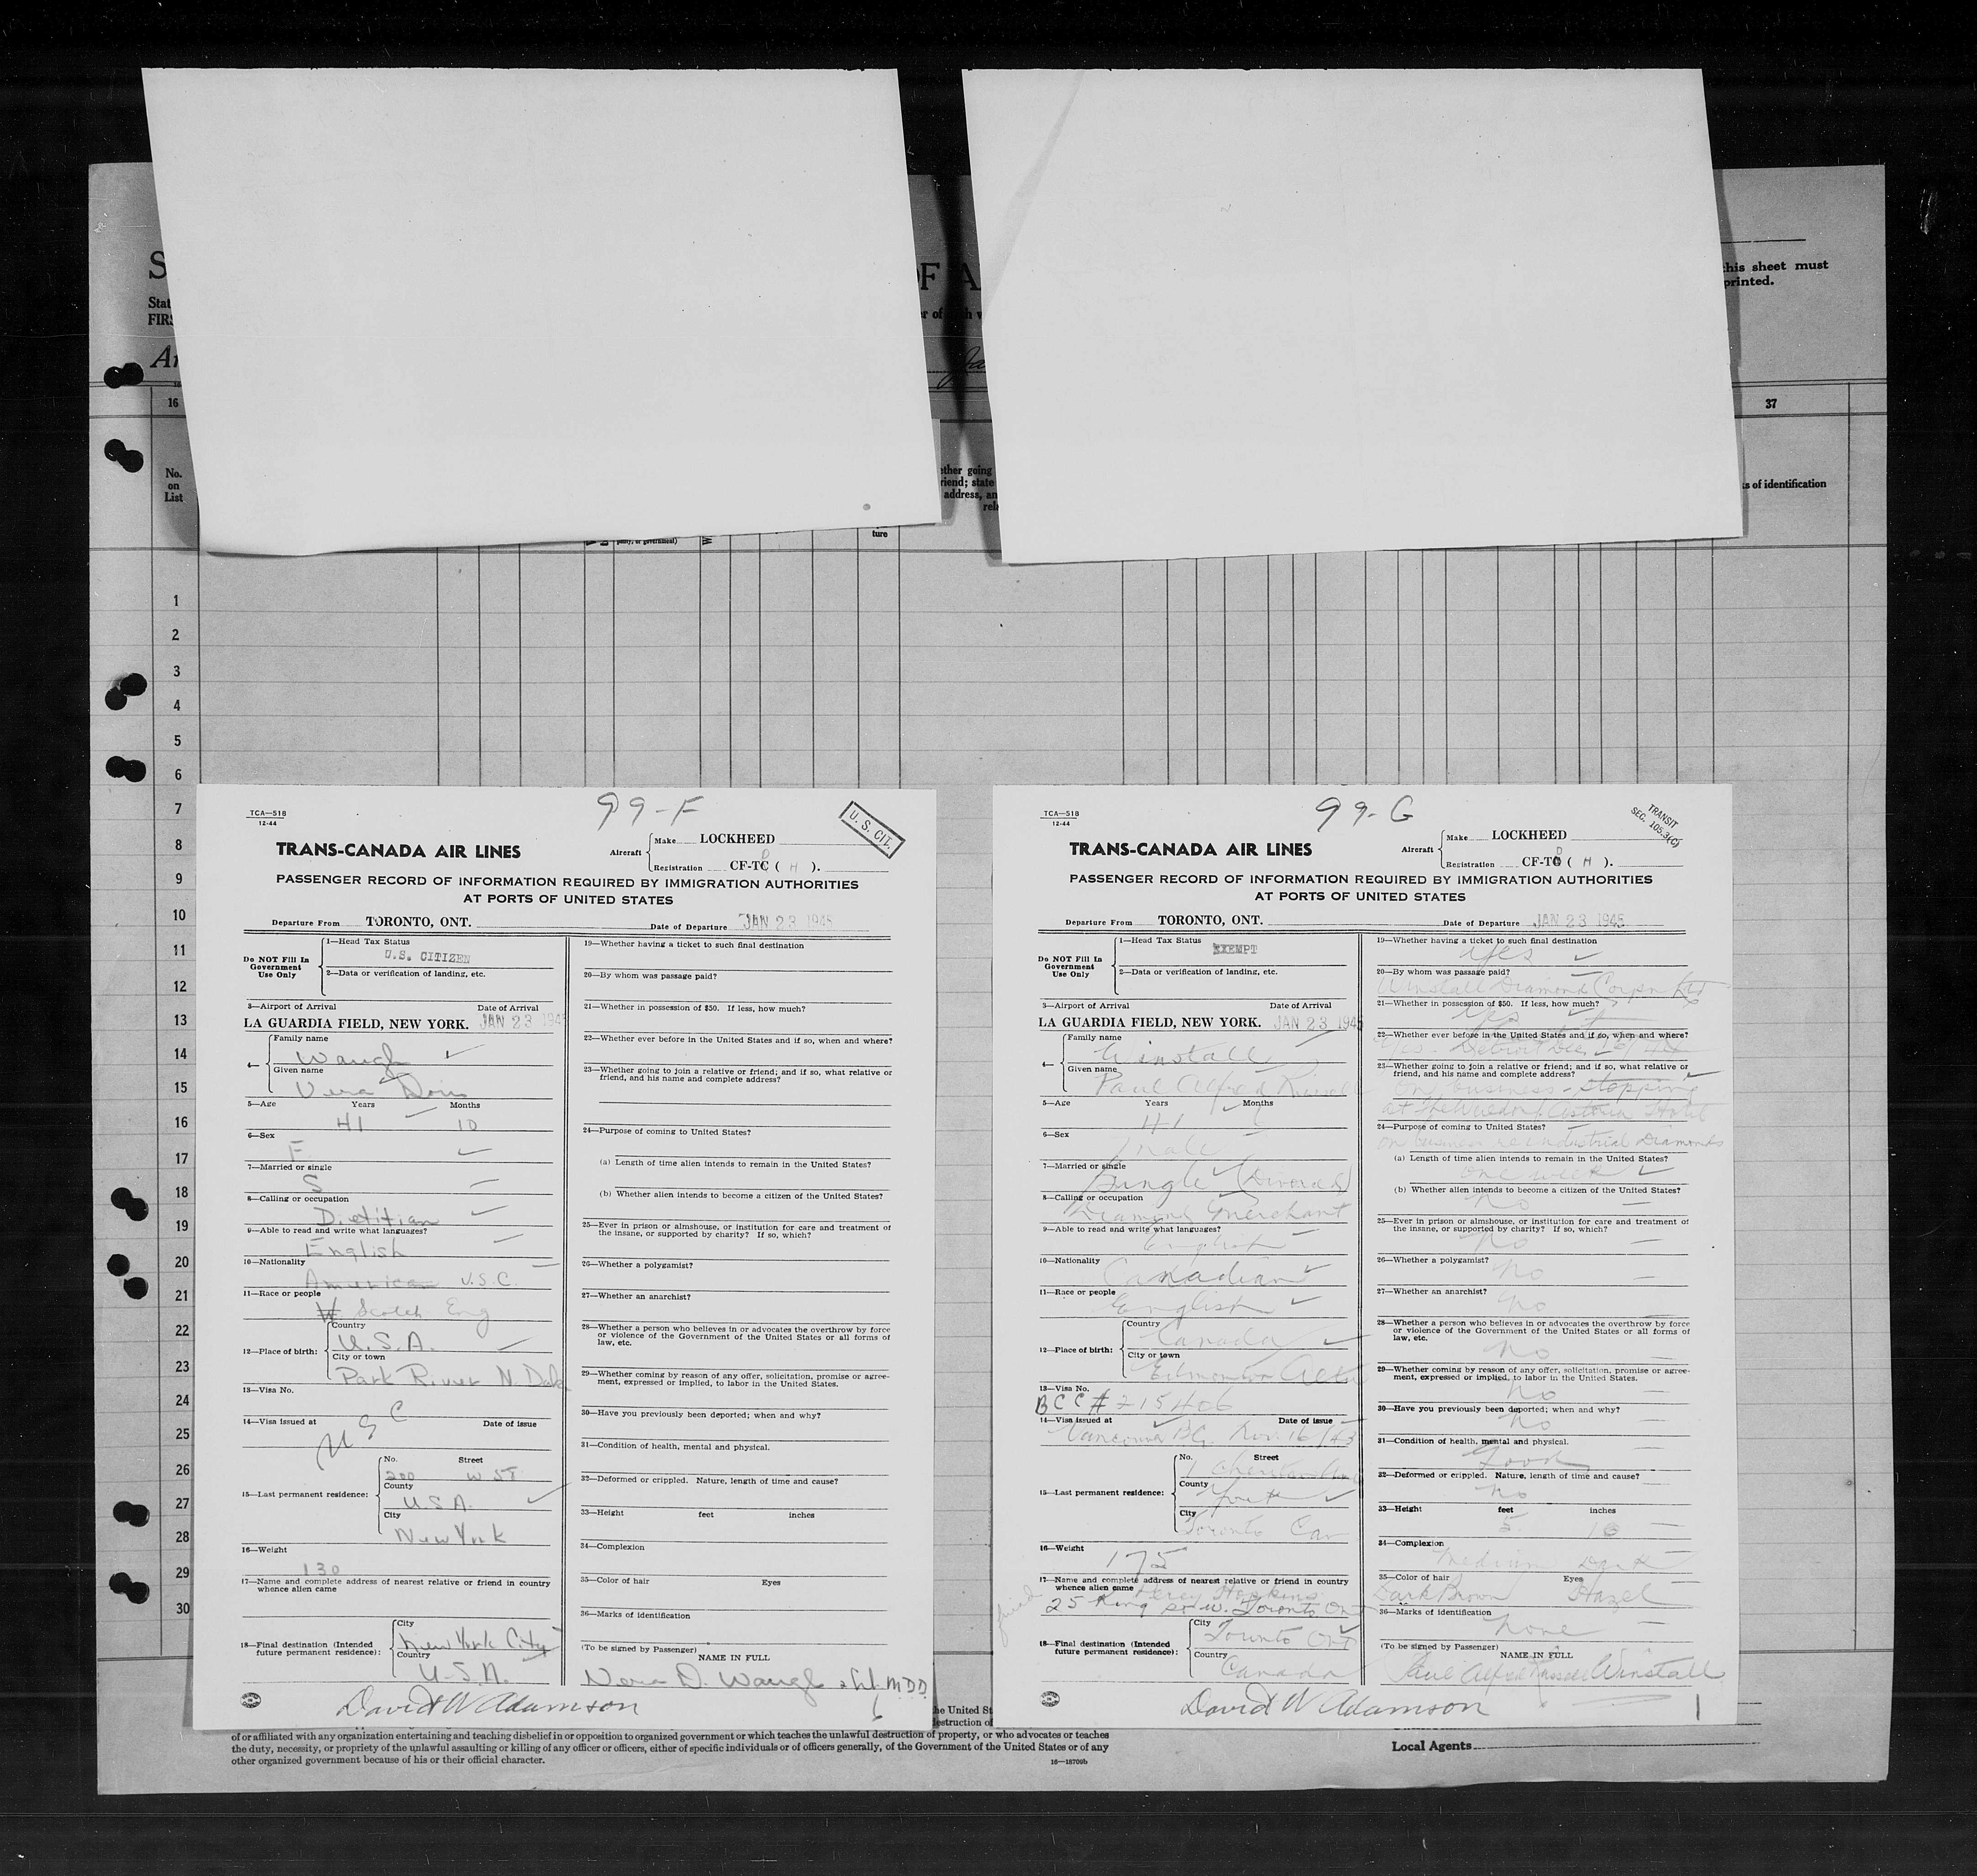 S
OF A
this sheet must
printed.
Stat
FIRS
16
37
No.
on
List
ether going
riend; state
address, an
rela
ks of identification
party, or government)
ture
1
2
3
4
5
6
7
8
9
10
11
12
13
14
15
16
17
18
19
20
21
22
23
24
25
26
27
28
29
30
99-F
TCA—518
12-44
U. S. CIT.
TRANS-CANADA AIR LINES
Aircraft
Make LOCKHEED
Registration CF-TC ( H ).
D
PASSENGER RECORD OF INFORMATION REQUIRED BY IMMIGRATION AUTHORITIES
AT PORTS OF UNITED STATES
Departure From TORONTO, ONT. Date of Departure JAN 23 1945
Do NOT Fill In
Government
Use Only
1—Head Tax Status
U.S. CITIZEN
2—Data or verification of landing, etc.
3—Airport of Arrival Date of Arrival
LA GUARDIA FIELD, NEW YORK. JAN 23 194
4—
Family name
Waugh
Given name
Vera Doris
5—Age Years Months
41 10
6—Sex
F
7—Married or single
S
8—Calling or occupation
Dietitian
9—Able to read and write what languages?
English
10—Nationality
American U.S.C.
11—Race or people
W Scotch Eng
12—Place of birth:
Country
U.S.A.
City or town
Park River N. Dak
13—Visa No.
14—Visa issued at Date of issue
U S C
15—Last permanent residence:
No. Street
200 W ST
County
U S A.
City
New York
16—Weight
130
17—Name and complete address of nearest relative or friend in country
whence alien came
18—Final destination (Intended
future permanent residence):
City
New York City
Country
U.S.A.
19—Whether having a ticket to such final destination
20—By whom was passage paid?
21—Whether in possession of $50. If less, how much?
22—Whether ever before in the United States and if so, when and where?
23—Whether going to join a relative or friend; and if so, what relative or
friend, and his name and complete address?
24—Purpose of coming to United States?
(a) Length of time alien intends to remain in the United States?
(b) Whether alien intends to become a citizen of the United States?
25—Ever in prison or almshouse, or institution for care and treatment of
the insane, or supported by charity? If so, which?
26—Whether a polygamist?
27—Whether an anarchist?
28—Whether a person who believes in or advocates the overthrow by force
or violence of the Government of the United States or all forms of
law, etc.
29—Whether coming by reason of any offer, solicitation, promise or agree-
ment, expressed or implied, to labor in the United States.
30—Have you previously been deported; when and why?
31—Condition of health, mental and physical.
32—Deformed or crippled. Nature, length of time and cause?
33—Height feet inches
34—Complexion
35—Color of hair Eyes
36—Marks of identification
(To be signed by Passenger)
NAME IN FULL
Vera D. Waugh
David W Adamson
99-G
TCA—518
12-44
TRANSIT
SEC. 105.3(C)
TRANS-CANADA AIR LINES
Aircraft
Make LOCKHEED
Registration CF-TC ( H ).
D
PASSENGER RECORD OF INFORMATION REQUIRED BY IMMIGRATION AUTHORITIES
AT PORTS OF UNITED STATES
Departure From TORONTO, ONT. Date of Departure JAN 23 1945
Do NOT Fill In
Government
Use Only
1—Head Tax Status
EXEMPT
2—Data or verification of landing, etc.
3—Airport of Arrival Date of Arrival
LA GUARDIA FIELD, NEW YORK. JAN 23 1945
4—
Family name
Winstall
Given name
Paul Alfred Russell
5—Age Years Months
41
6—Sex
male
7—Married or single
Single (Divorced)
8—Calling or occupation
Diamond Merchant
9—Able to read and write what languages?
English
10—Nationality
Canadian
11—Race or people
English
12—Place of birth:
Country
Canada
City or town
Edmonton Alta
13—Visa No.
BCC # 215406
14—Visa issued at Date of issue
Vancouver BC. Nov 16/43
15—Last permanent residence:
No. Street
County
York
City
Toronto Can
16—Weight
175
17—Name and complete address of nearest relative or friend in country
whence alien came
Percy Hopkins
friend
25 King St W. Toronto Ont
18—Final destination (Intended
future permanent residence):
City
Toronto Ont
Country
Canada
19—Whether having a ticket to such final destination
Yes
20—By whom was passage paid?
Winstall Diamond Corpn Ltd
21—Whether in possession of $50. If less, how much?
Yes
22—Whether ever before in the United States and if so, when and where?
Yes - Detroit Dec
23—Whether going to join a relative or friend; and if so, what relative or
friend, and his name and complete address?
On business - stopping
at The Waldorf Astoria Hotel
24—Purpose of coming to United States?
on business re industrial Diamonds
(a) Length of time alien intends to remain in the United States?
one week
(b) Whether alien intends to become a citizen of the United States?
No
25—Ever in prison or almshouse, or institution for care and treatment of
the insane, or supported by charity? If so, which?
No
26—Whether a polygamist?
No
27—Whether an anarchist?
No
28—Whether a person who believes in or advocates the overthrow by force
or violence of the Government of the United States or all forms of
law, etc.
No
29—Whether coming by reason of any offer, solicitation, promise or agree-
ment, expressed or implied, to labor in the United States.
No
30—Have you previously been deported; when and why?
No
31—Condition of health, mental and physical.
Good
32—Deformed or crippled. Nature, length of time and cause?
No
33—Height feet inches
5 10
34—Complexion
Medium Dark
35—Color of hair Eyes
Dark Brown Hazel
36—Marks of identification
None
(To be signed by Passenger)
NAME IN FULL
Paul Alfred Russell Winstall
David W Adamson
he United St
destruction of
of or affiliated with any organization entertaining and teaching disbelief in or opposition to organized government or which teaches the unlawful destruction of property, or who advocates or teaches
the duty, necessity, or propriety of the unlawful assaulting or killing of any officer or officers, either of specific individuals or of officers generally, of the Government of the United States or of any
other organized government because of his or their official character.
16—18709b
Local Agents